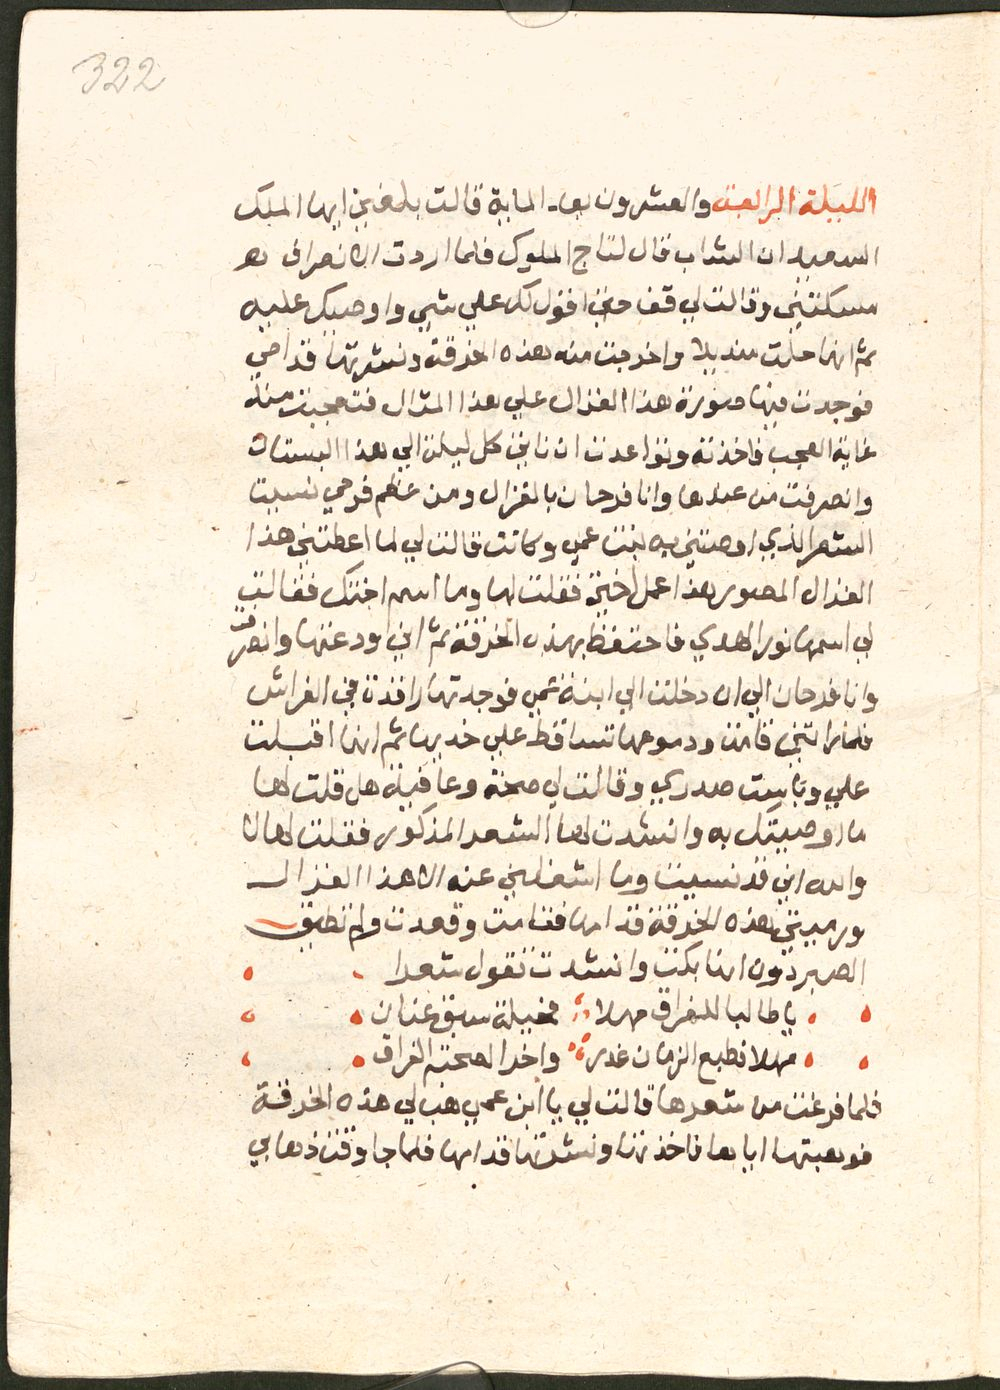 322
الليلة الرابعة والعشرون بعد الماية قالت بلغني ايها الملك
السعيد ان الشاب قال لتاج الملوك فلما اردت الانصراف
مسكتني وقالت لي قف حتى اقول لك علي شي واوصيك عليه
ثم انها حلت منديلا واخرجت منه هذه الخرقة ونشرتها قدامي
فوجدت فيها صورة هذا الغزال علي هذا المثال فتعجبت منه
غاية العجب فاخذته وتواعدت ان ناتي كل ليلة الي هذا البستان
وانصرفت من عندها وانا فرحان بالغزال ومن عظم فرحي نسيت
الشعر الذي اوصتني به بنت عمي وكانت قالت لي لما اعطتني هذا
الغزال المصور هذا عمل اختي فقلت لها وما اسم اختك فقالت
لي اسمها نور الهدي فاحتفظ بهذه الخرقة ثم اني اودعتها وانصرفت
وانا فرحان الي ان دخلت الي ابنة عمي فوجدتها راقدة في الفراش
فلما راتني قامت ودموعها تتساقط علي خديها ثم انها اقبلت
علي وباست صدري وقالت لي صحة وعافية هل قلت لها
ما اوصيتك به وانشدت لها الشعر المذكور فقلت لها لا
والله اني قد نسيت وما اشغلني عنه الا هذا الغزال
ورميت هذه الخرقة قدامها فقامت وقعدت ولم تطيق
الصبر دون انها بكت وانشدت تقول شعرا
يا طالبا للفراق مهلا فحيلة سبق عنان
مهلا فطبع الزمان غدر واخر الصحبة الفراق
فلما فرغت من شعرها قالت لي يا ابن عمي هب لي هذه الخرقة
فوهبتها اياها فاخذتها ونشرتها قدامها فلما جا وقت ذهابي